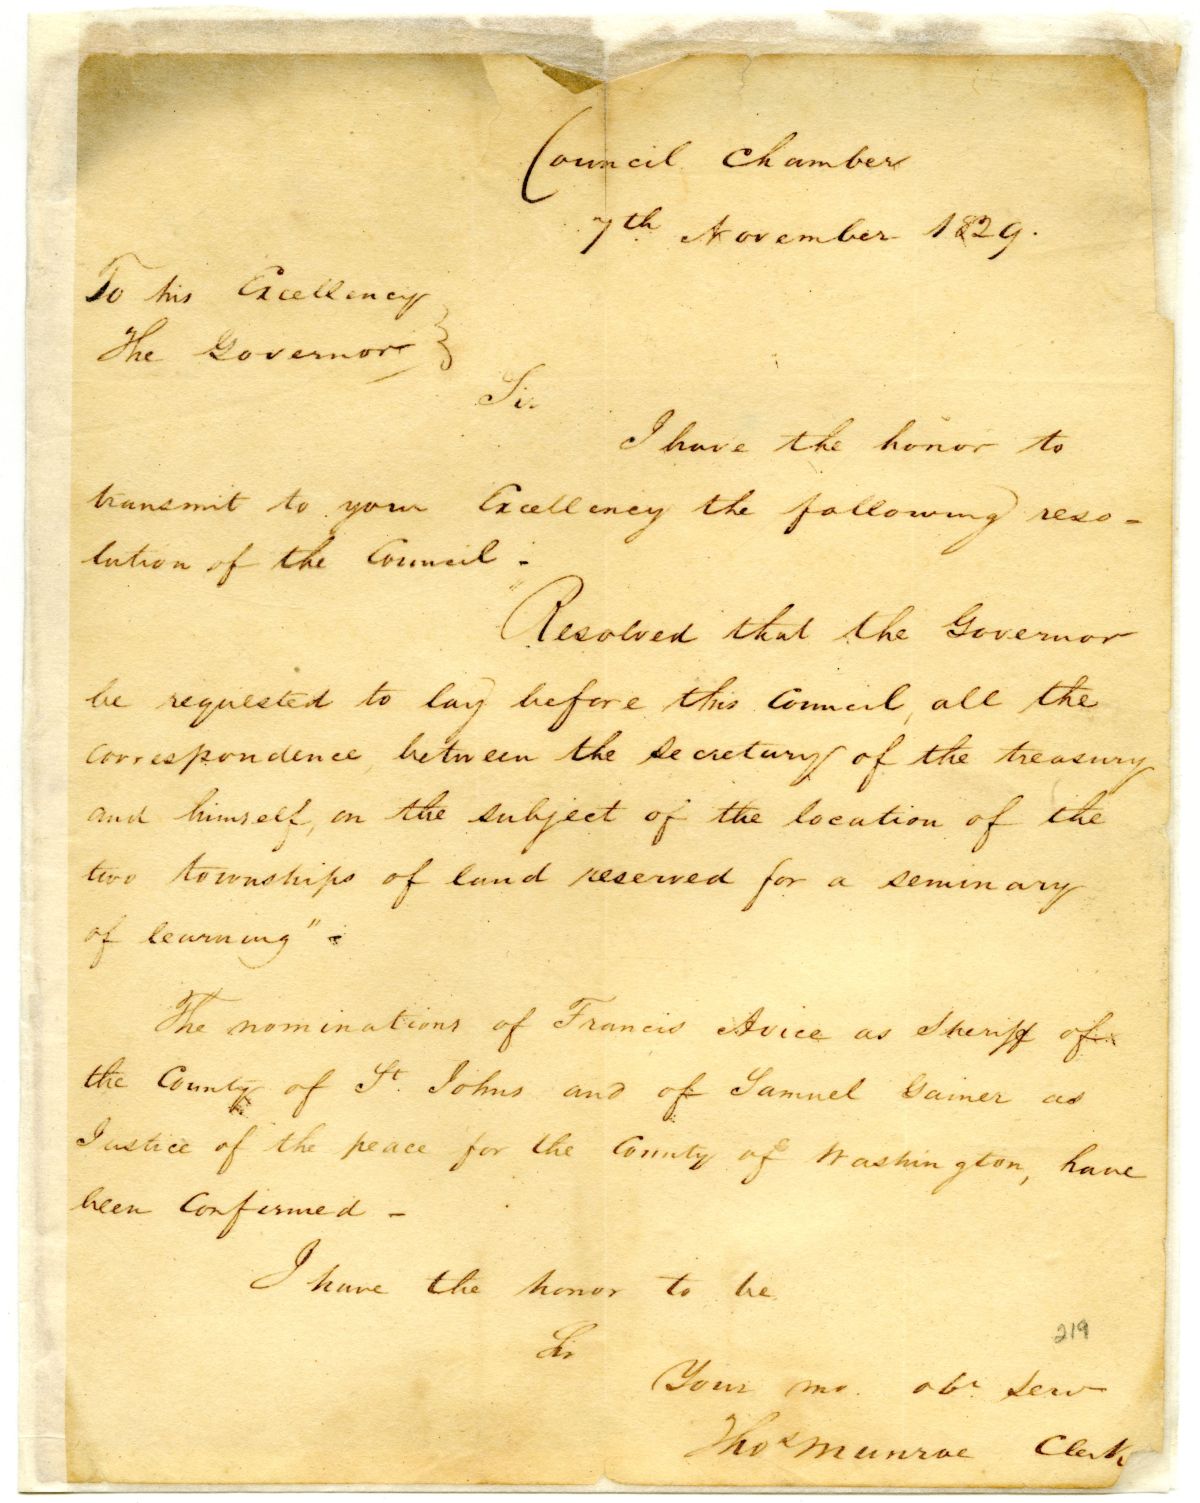 Council Chamber
7th November 1829.
To his Excellency
The Governor
Sir
I have the honor to
transmit to your Excellency the following reso-
lution of the Council -
"Resolved that the Governor
be requested to lay before this Council, all the
correspondence, between the secretary of the treasury
and himself, on the subject of the location of the
two townships of land reserved for a seminary
of learning" -
The nominations of Francis Avice as Sheriff of
the County of St. Johns and of Samuel Gainer as
Justice of the peace for the County of Washington, have
been Confirmed -
I have the honor to be
Sir
219
Your mo. obt serv
Thos Munroe Clerk